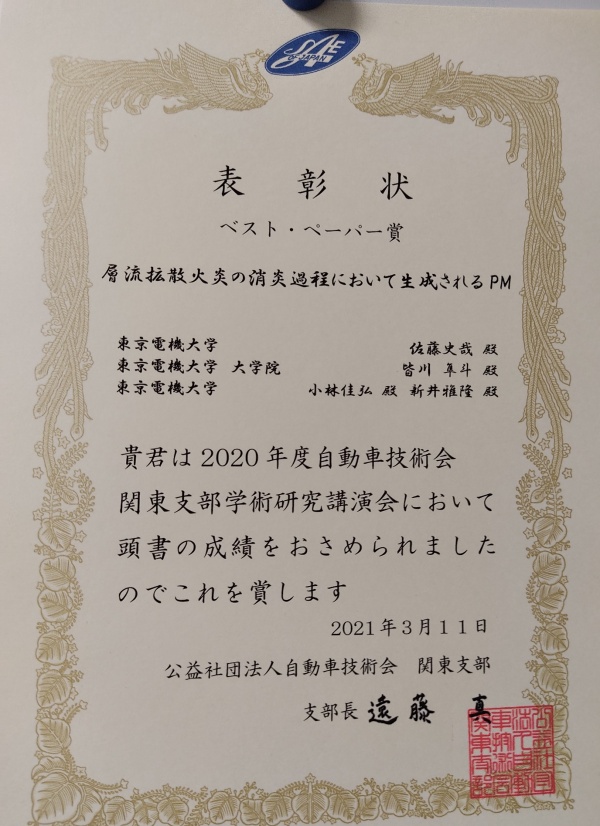 SAE
OF JAPAN
表彰状
ベスト・ペーパー賞
層流拡散火炎の消炎過程において生成されるPM
東京電機大学 佐藤史哉 殿
東京電機大学 大学院 皆川 隼斗 殿
東京電機大学 小林佳弘 殿 新井雅隆 殿
貴君は2020年度自動車技術会
関東支部学術研究講演会において
頭書の成績をおさめられました
のでこれを賞します
2021年3月11日
公益社団法人自動車技術会 関東支部
支部長 遠藤 真